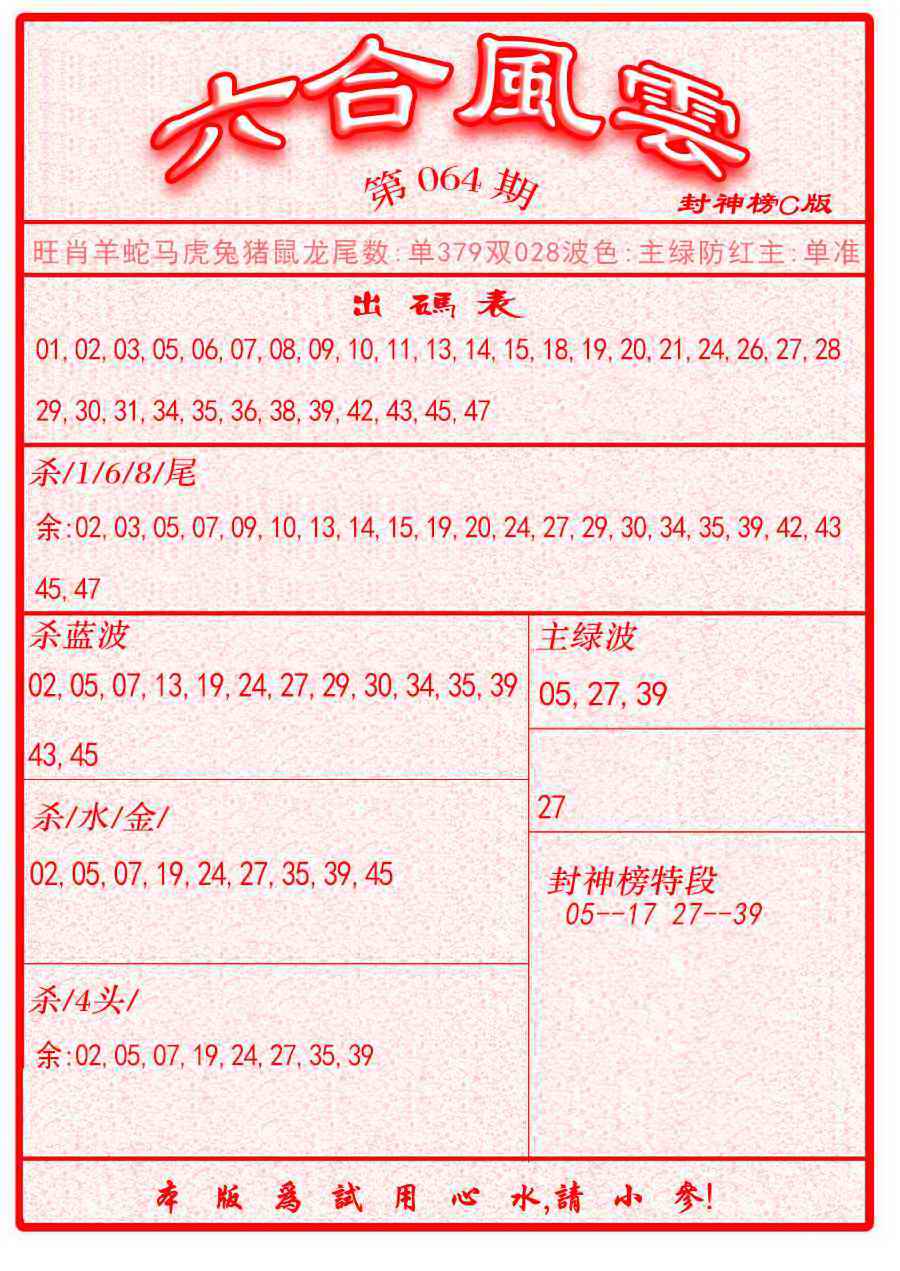 六合風雲
第064期
封神榜C版
旺肖羊蛇马虎兔猪鼠龙尾数:单379双028波色:主绿防红主:单准
出碼表
01,02,03,05,06,07,08,09,10,11,13,14,15,18,19,20,21,24,26,27,28
29,30,31,34,35,36,38,39,42,43,45,47
杀/1/6/8/尾
余:02,03,05,07,09,10,13,14,15,19,20,24,27,29,30,34,35,39,42,43
45,47
杀蓝波
02,05,07,13,19,24,27,29,30,34,35,39
43,45
主绿波
05,27,39
27
杀/水/金/
02,05,07,19,24,27,35,39,45
封神榜特段
05--17 27--39
杀/4头/
余:02,05,07,19,24,27,35,39
本版爲試用心水,請小參!